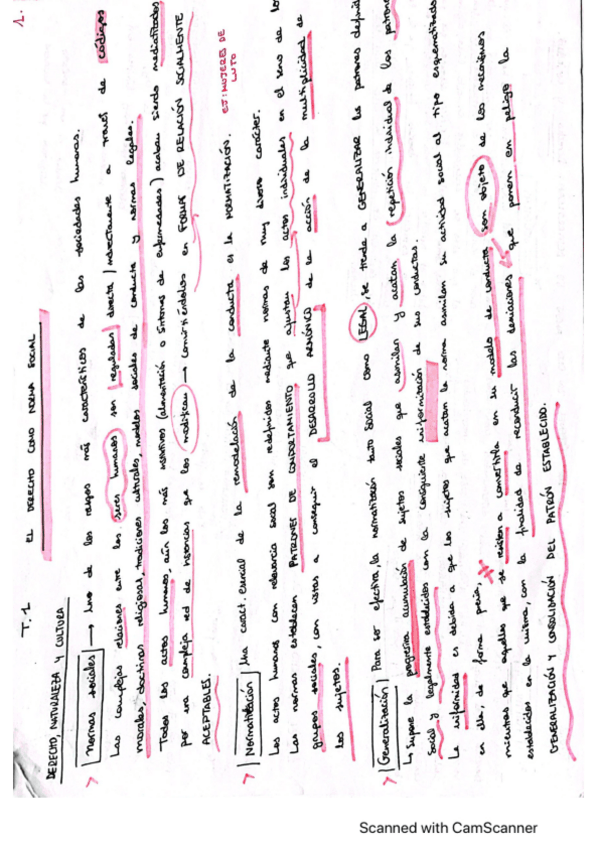 1.
T.1 EL DERECHO COMO NORMA SOCIAL
DERECHO, NATURALEZA Y CULTURA
> Normas sociales → Uno de los rasgos más característicos de las sociedades humanas.
Las complejas relaciones entre los seres humanos son reguladas directa/indirectamente a través de códigos
morales, doctrinas religiosas, tradiciones culturales, modelos sociales de conducta y normas legales.
Todos los actos humanos, aún los más instintivos (alimentación o síntomas de enfermedades) acaban siendo mediatizados
por una compleja red de instancias que los modifican → convirtiéndolos en FORMAS DE RELACIÓN SOCIALMENTE
ACEPTABLES.
EJ: MUJERES DE
LUTO
> Normativización Una caract. esencial de la remodelación de la conducta es la NORMATIVIZACIÓN.
Los actos humanos con relevancia social son redefinidos mediante normas de muy diverso carácter.
Las normas establecen PATRONES DE COMPORTAMIENTO que ajustan los actos individuales en el seno de los
grupos sociales, con vistas a conseguir el DESARROLLO ARMÓNICO de la acción de la multiplicidad de
los sujetos.
> Generalización Para ser efectiva, la normativización tanto social como LEGAL, se tiende a GENERALIZAR los patrones
↳ Supone la progresiva acumulación de sujetos sociales que asimilan y acatan la repetición individual de los patrones
social y legalmente establecidos con la consiguiente uniformización de sus conductas.
La uniformidad es debida a que los sujetos que acatan la norma asimilan su actividad social al tipo esquematizado
en ella, de forma pacífica, mientras que aquellos que se resisten a convertirla en su modelo de conducta son objeto de los mecanismos
establecidos en la misma, con la finalidad de reconducir las desviaciones que ponen en peligro la
GENERALIZACIÓN Y CONSOLIDACIÓN DEL PATRÓN ESTABLECIDO.
Scanned with CamScanner